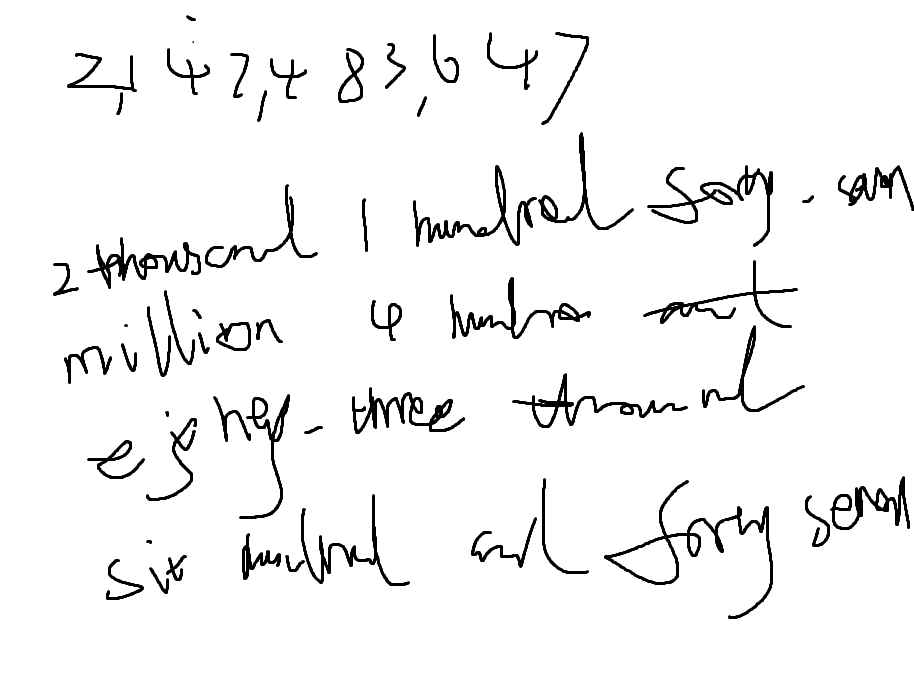 2,147,483,647
2 thousand 1 hundred forty-
million 4 hundre
three thousand
six hundred and forty seven